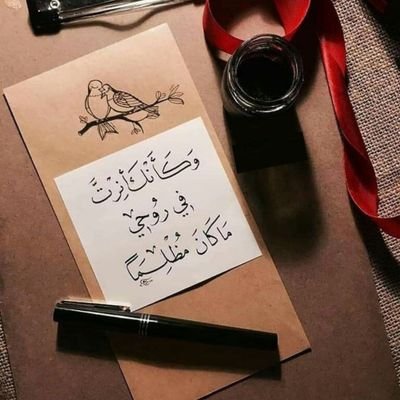 وَكَأَنَّكَ أَنَرْتَ
فِي رُوحِي
مَا كَانَ مُظْلِمًا